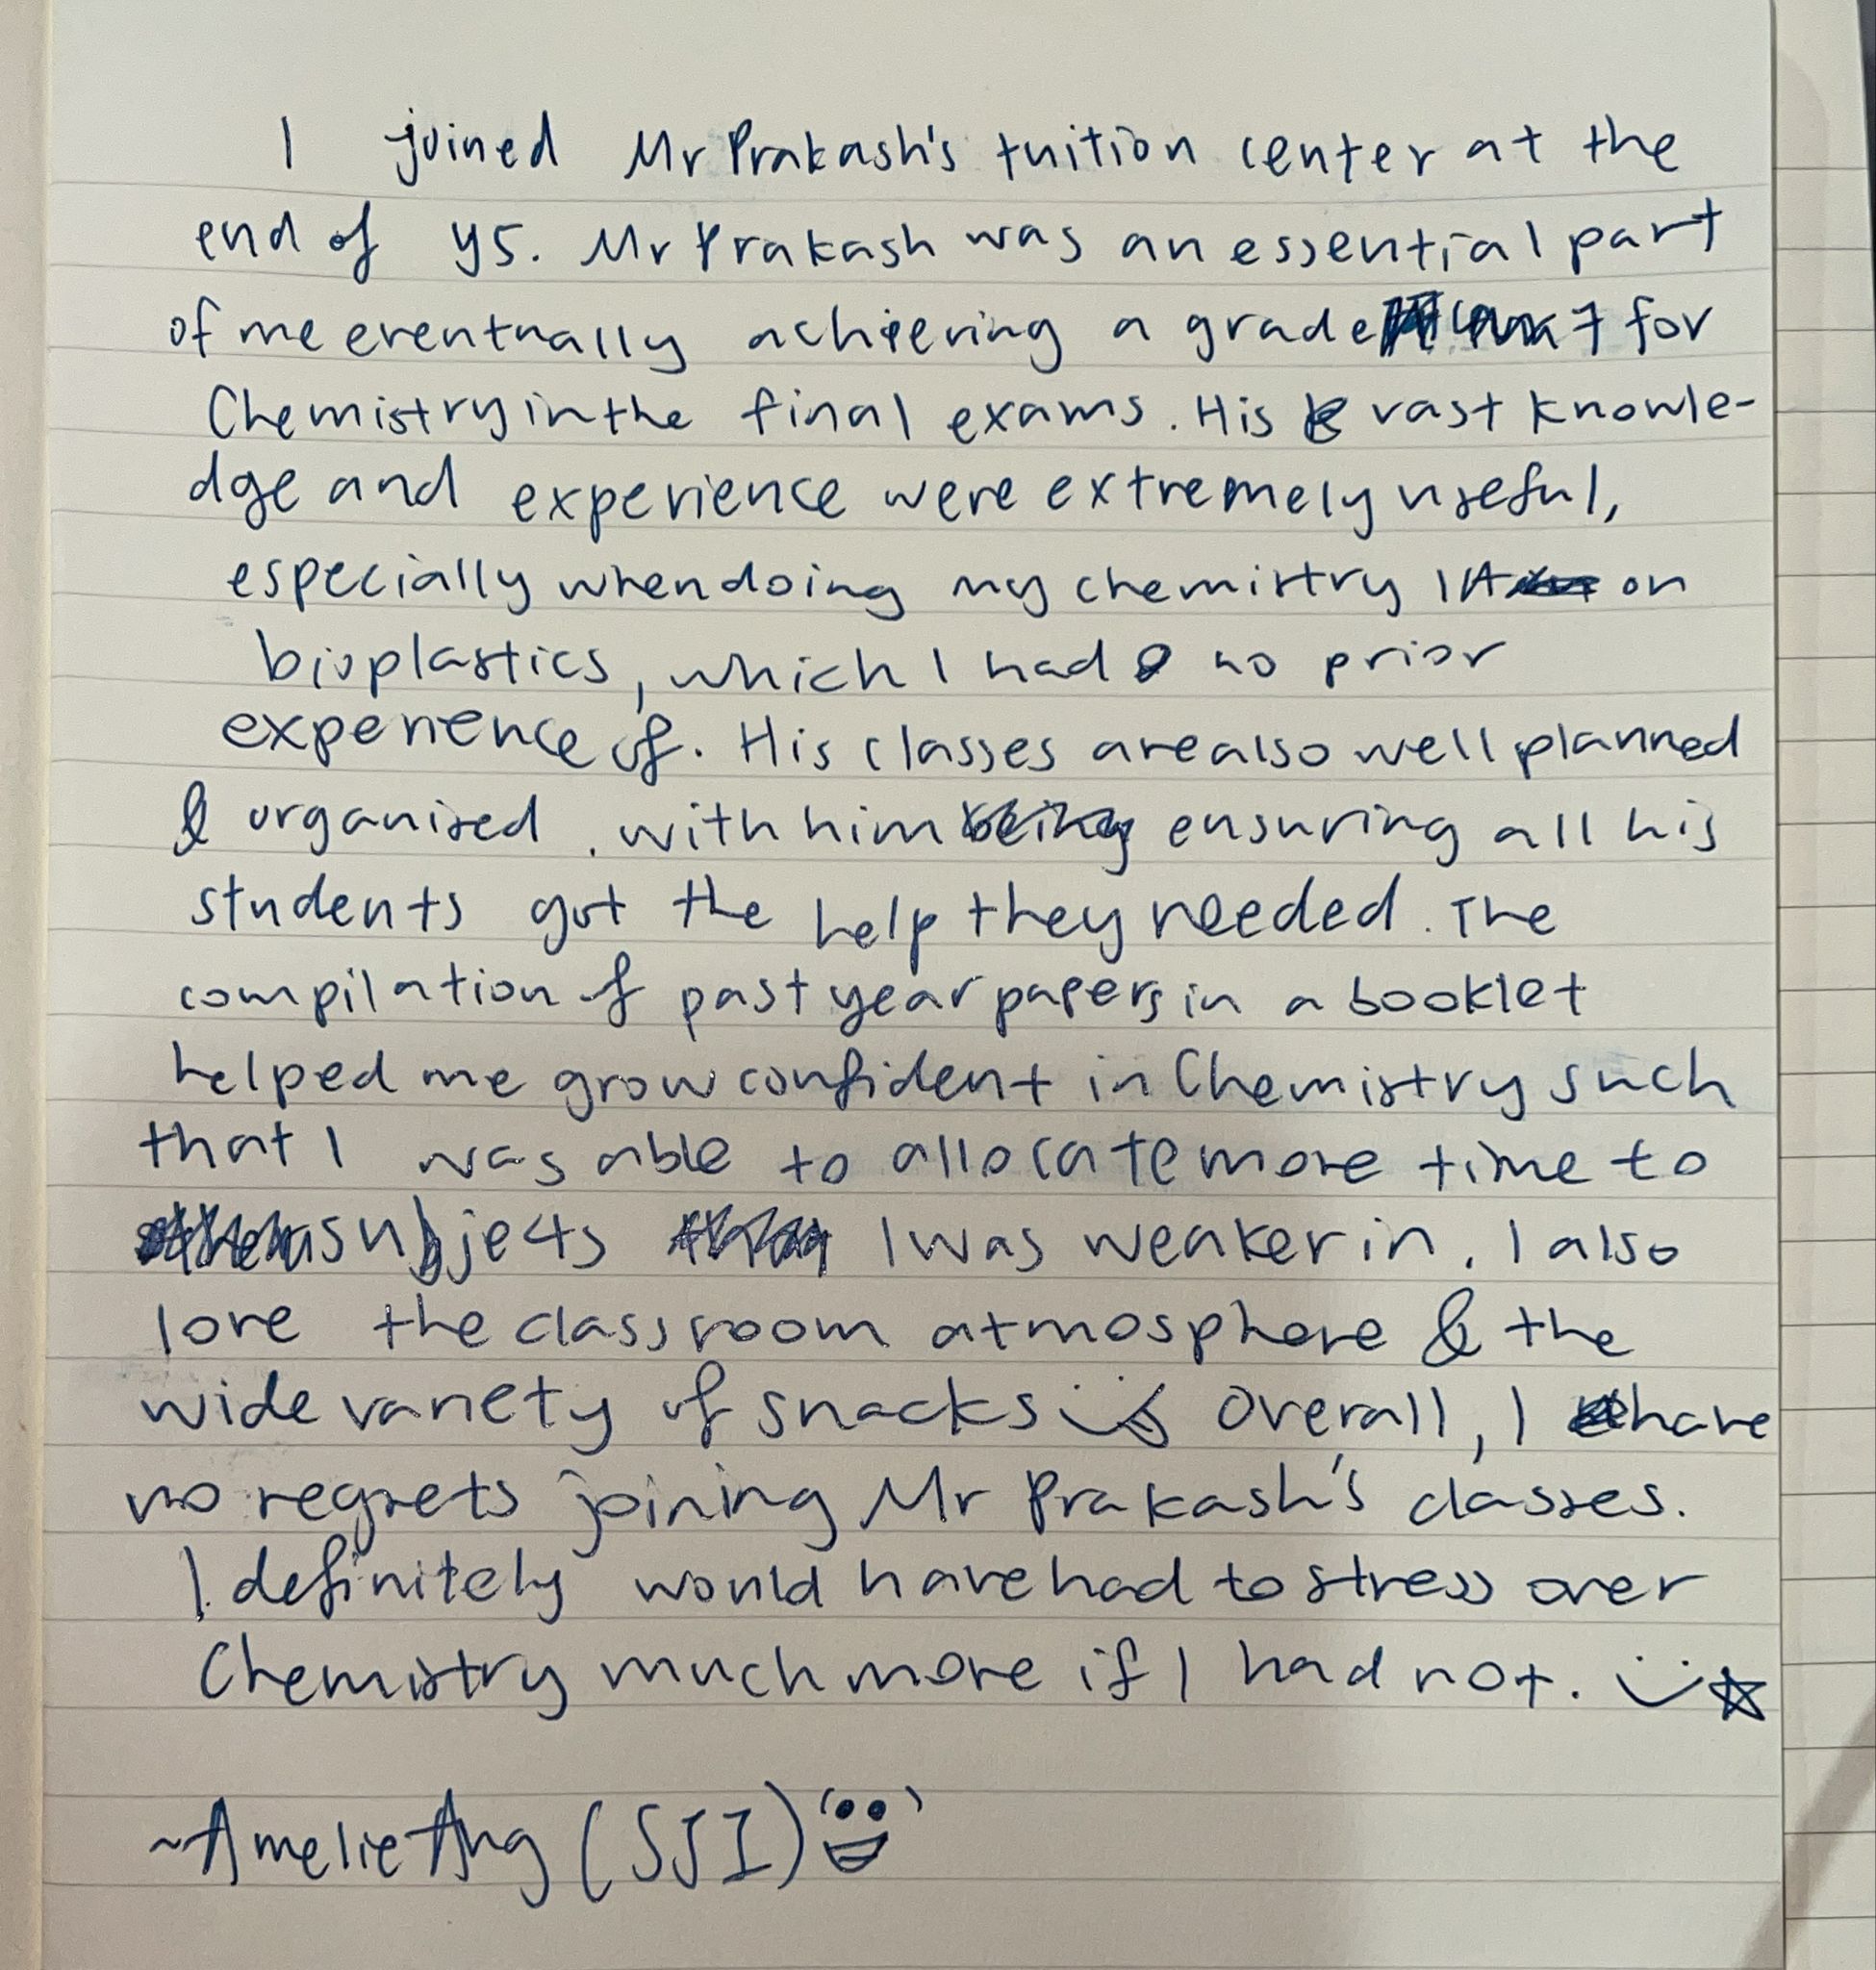 I joined Mr Prakash's tuition center at the
end of y5. Mr Prakash was an essential part
of me eventually achieving a grade 7 for
Chemistry in the final exams. His vast knowle-
dge and experience were extremely useful,
especially when doing my chemistry IA on
bioplastics, which I had no prior
experience of. His classes are also well planned
& organised, with him ensuring all his
students got the help they needed. The
compilation of past year papers in a booklet
helped me grow confident in Chemistry such
that I was able to allocate more time to
subjects I was weaker in. I also
love the classroom atmosphere & the
wide variety of snacks :) Overall, I have
no regrets joining Mr Prakash's classes.
I definitely would have had to stress over
Chemistry much more if I had not. :) ☆
~Amelie Ang (SJI)